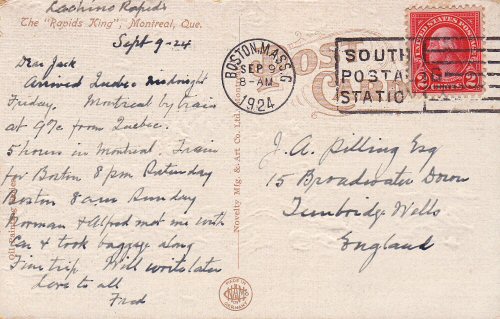 Lachine Rapids
The "Rapids King", Montreal, Que.
Sept 9-24
Dear Jack
Arrived Quebec midnight
Friday. Montreal by train
at from Quebec.
5 hours in Montreal. Train
for Boston 8 pm Saturday
Boston 8 am Sunday
Norman & Alfred met me with
Car & took baggage along
Fine trip. Will write later
Love to all
Fred
Novelty Mfg. & Art Co. Ltd.
MADE IN
GERMANY
POST
BOSTON, MASS.
SEP 9
8-AM
1924
SOUTH
POSTAL
STATIO
UNITED STATES POSTAGE
2 CENTS 2
J. A. Pilling Esq
15 Broadwater Down
Tunbridge Wells
England